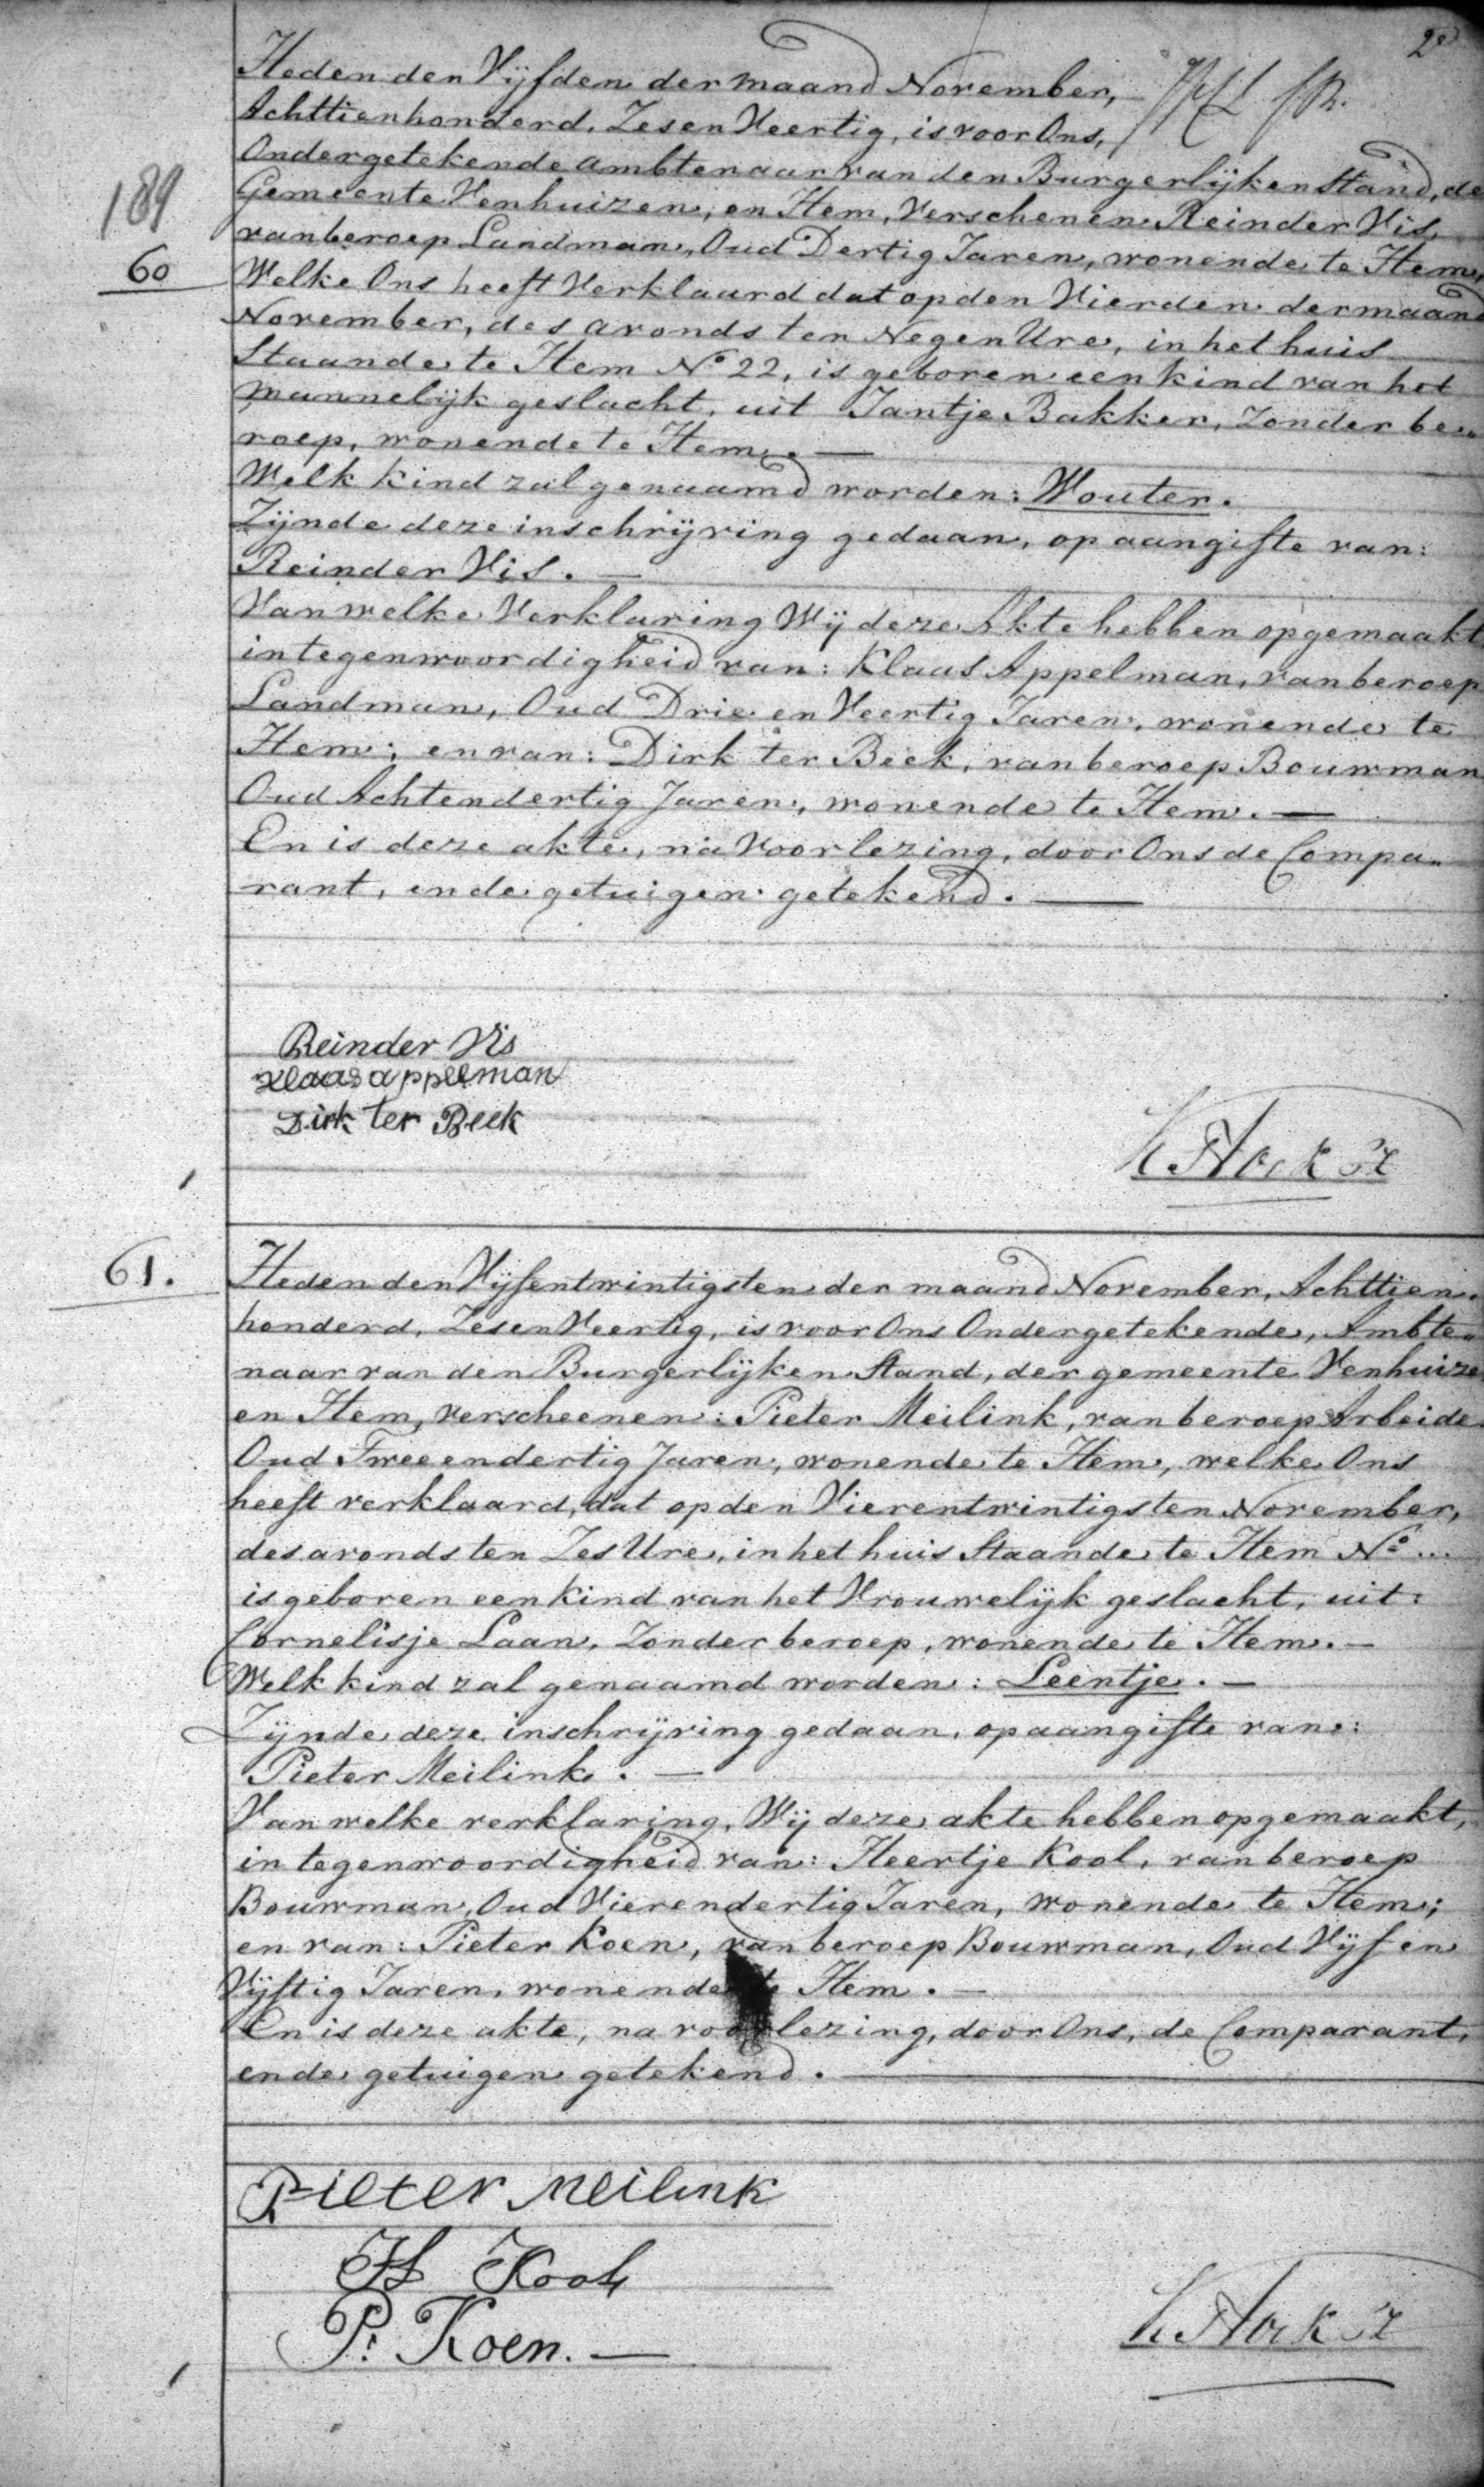 Heden den Vijfden der maand November,
Achttienhonderd, Zes en Veertig, is voor Ons,
Ondergetekende ambtenaar van den Burgerlijken Stand, de
189
Gemeente Venhuizen, en Hem, Verschenen Reinder Vis,
van beroep Landman, Oud Dertig Jaren, wonende te Hem,
60
Welke Ons heeft Verklaard dat op den Vierden der maand
November, des avonds ten Negen Ure, in het huis
Staande te Hem No 22, is geboren een kind van het
mannelijk geslacht, uit Jantje Bakker, Zonder be„
roep, wonende te Hem. —
Welk kind zal genaamd worden: Wouter.
Zijnde deze inschrijving gedaan, op aangifte van:
Reinder Vis. —
Van welke Verklaring Wij deze Akte hebben opgemaakt,
in tegenwoordigheid van: Klaas Appelman, van beroep
Landman, Oud Drie en Veertig Jaren, wonende te
Hem; en van: Dirk ter Beek, van beroep Bouwman
Oud Achtendertig Jaren, wonende te Hem. —
En is deze akte, na Voorlezing, door Ons de Compa„
rant, en de getuigen getekend. —
Reinder Vis
Klaas appelman
Dirk ter Beek
61.
Heden den Vijfentwintigsten der maand November, Achttien„
honderd, Zes en Veertig, is voor Ons Ondergetekende, Ambte„
naar van den Burgerlijken Stand, der gemeente Venhuize
en Hem, verscheenen: Pieter Meilink, van beroep Arbeide
Oud Tweeendertig Jaren, wonende te Hem, welke Ons
heeft verklaard, dat op den Vierentwintigsten November,
des avonds ten Zes Ure, in het huis Staande te Hem No ...
is geboren een kind van het Vrouwelijk geslacht, uit:
Cornelisje Laan, Zonder beroep, wonende te Hem. —
Welk kind zal genaamd worden: Leentje. —
Zijnde deze inschrijving gedaan, op aangifte van:
Pieter Meilink. —
Van welke verklaring, Wij deze akte hebben opgemaakt,
in tegenwoordigheid van: Heertje Kool, van beroep
Bouwman, Oud Vierendertig Jaren, wonende te Hem;
en van: Pieter Koen, van beroep Bouwman, Oud Vijf en
Vijftig Jaren, wonende te Hem. —
En is deze akte, na voorlezing, door Ons, de Comparant,
en de getuigen getekend. —
Pieter Meilink
H Kool
P: Koen. —